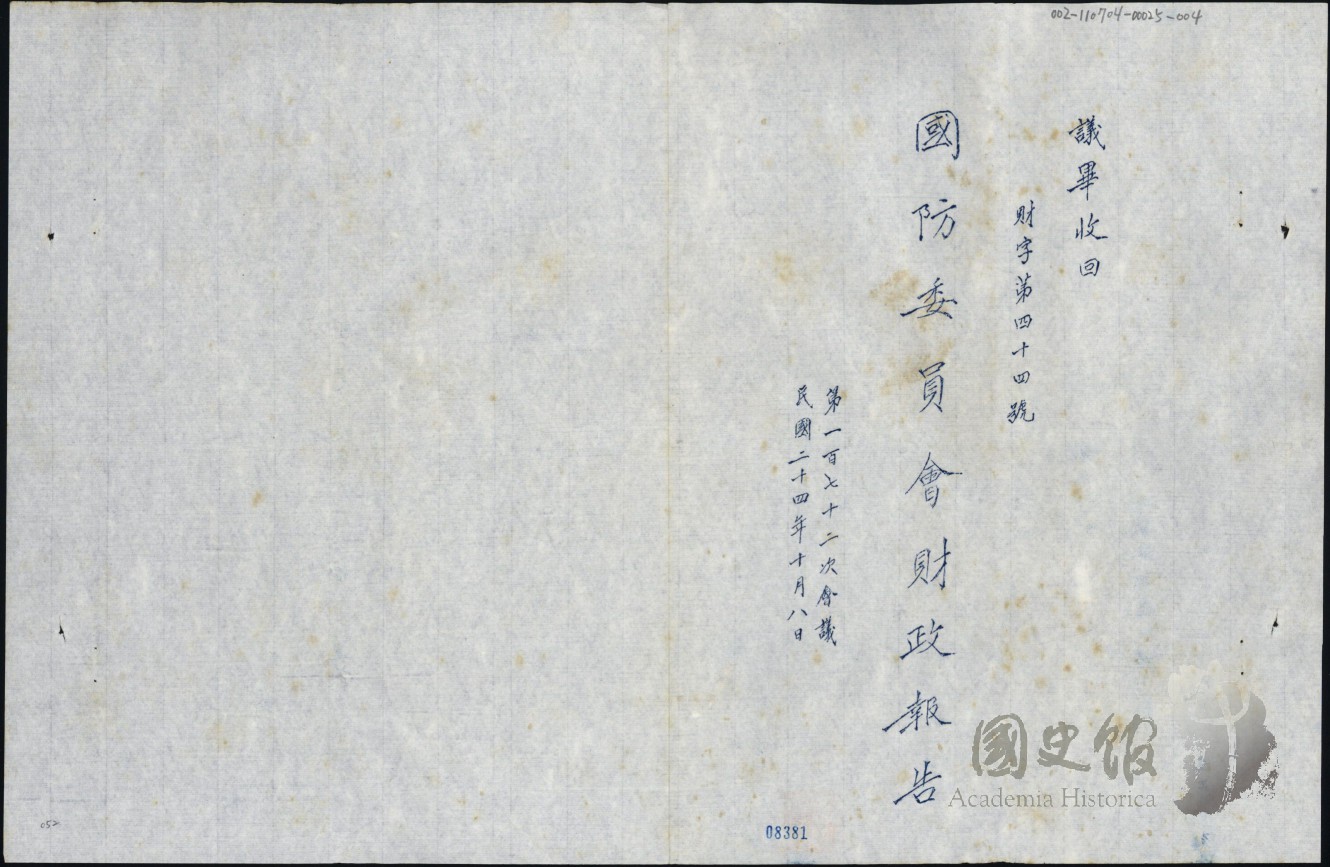 002-110704-00025-004
議畢收回
財字第四十四號
國防委員會財政報告
第一百七十二次會議
民國二十四年十月八日
國史館
Academia Historica
08381
052